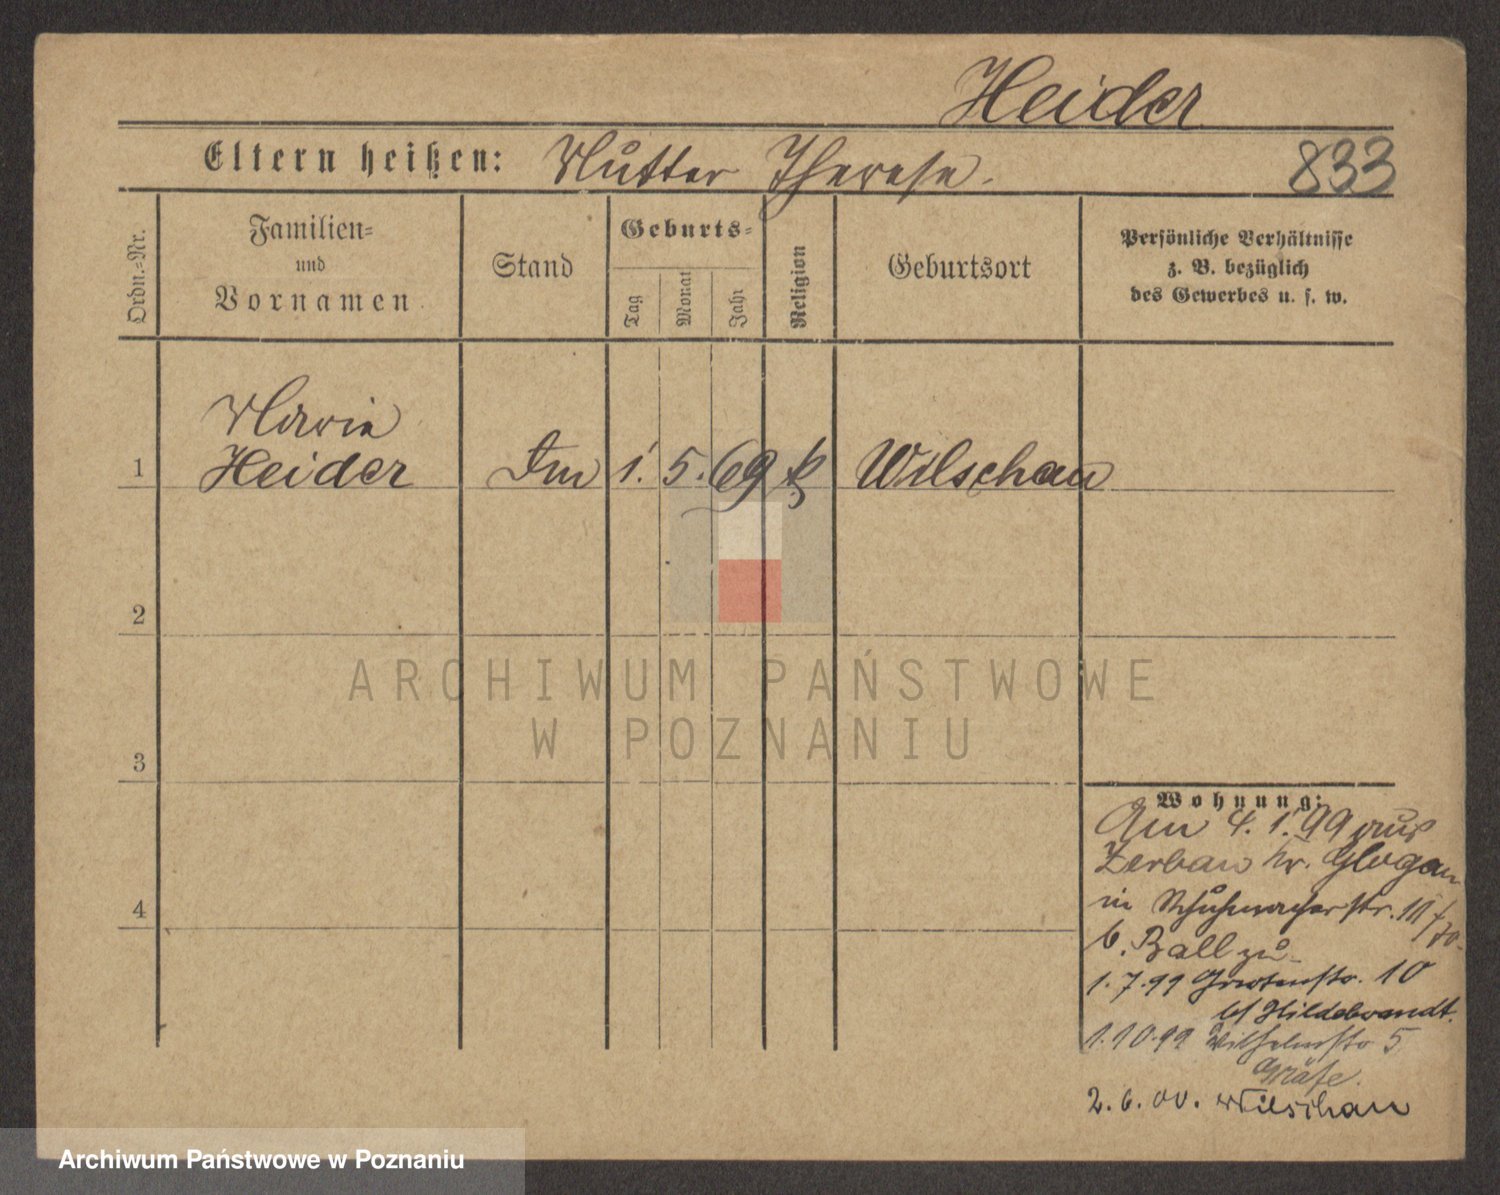 Heider
Eltern heißen: Mutter Therese.
833
Ordn.=Nr.
Familien=
und
Vornamen
Stand
Geburts=
Tag
Monat
Jahr
Religion
Geburtsort
Persönliche Verhältnisse
z. B. bezüglich
des Gewerbes u. s. w.
Marie
1 Heider 1. 5. 69 k Wilschau
2
ARCHIWUM PAŃSTWOWE
W POZNANIU
3
4
Wohnung:
Am 4. 1. 99 aus
Zerbau Kr. Glogau
in Schuhmacherstr. 11
b. Ball zu
1. 7. 99 10
bei Hildebrandt.
1. 10. 99 Wilhelmstr 5
Gräfe.
2. 6. 00. Wilschau
Archiwum Państwowe w Poznaniu